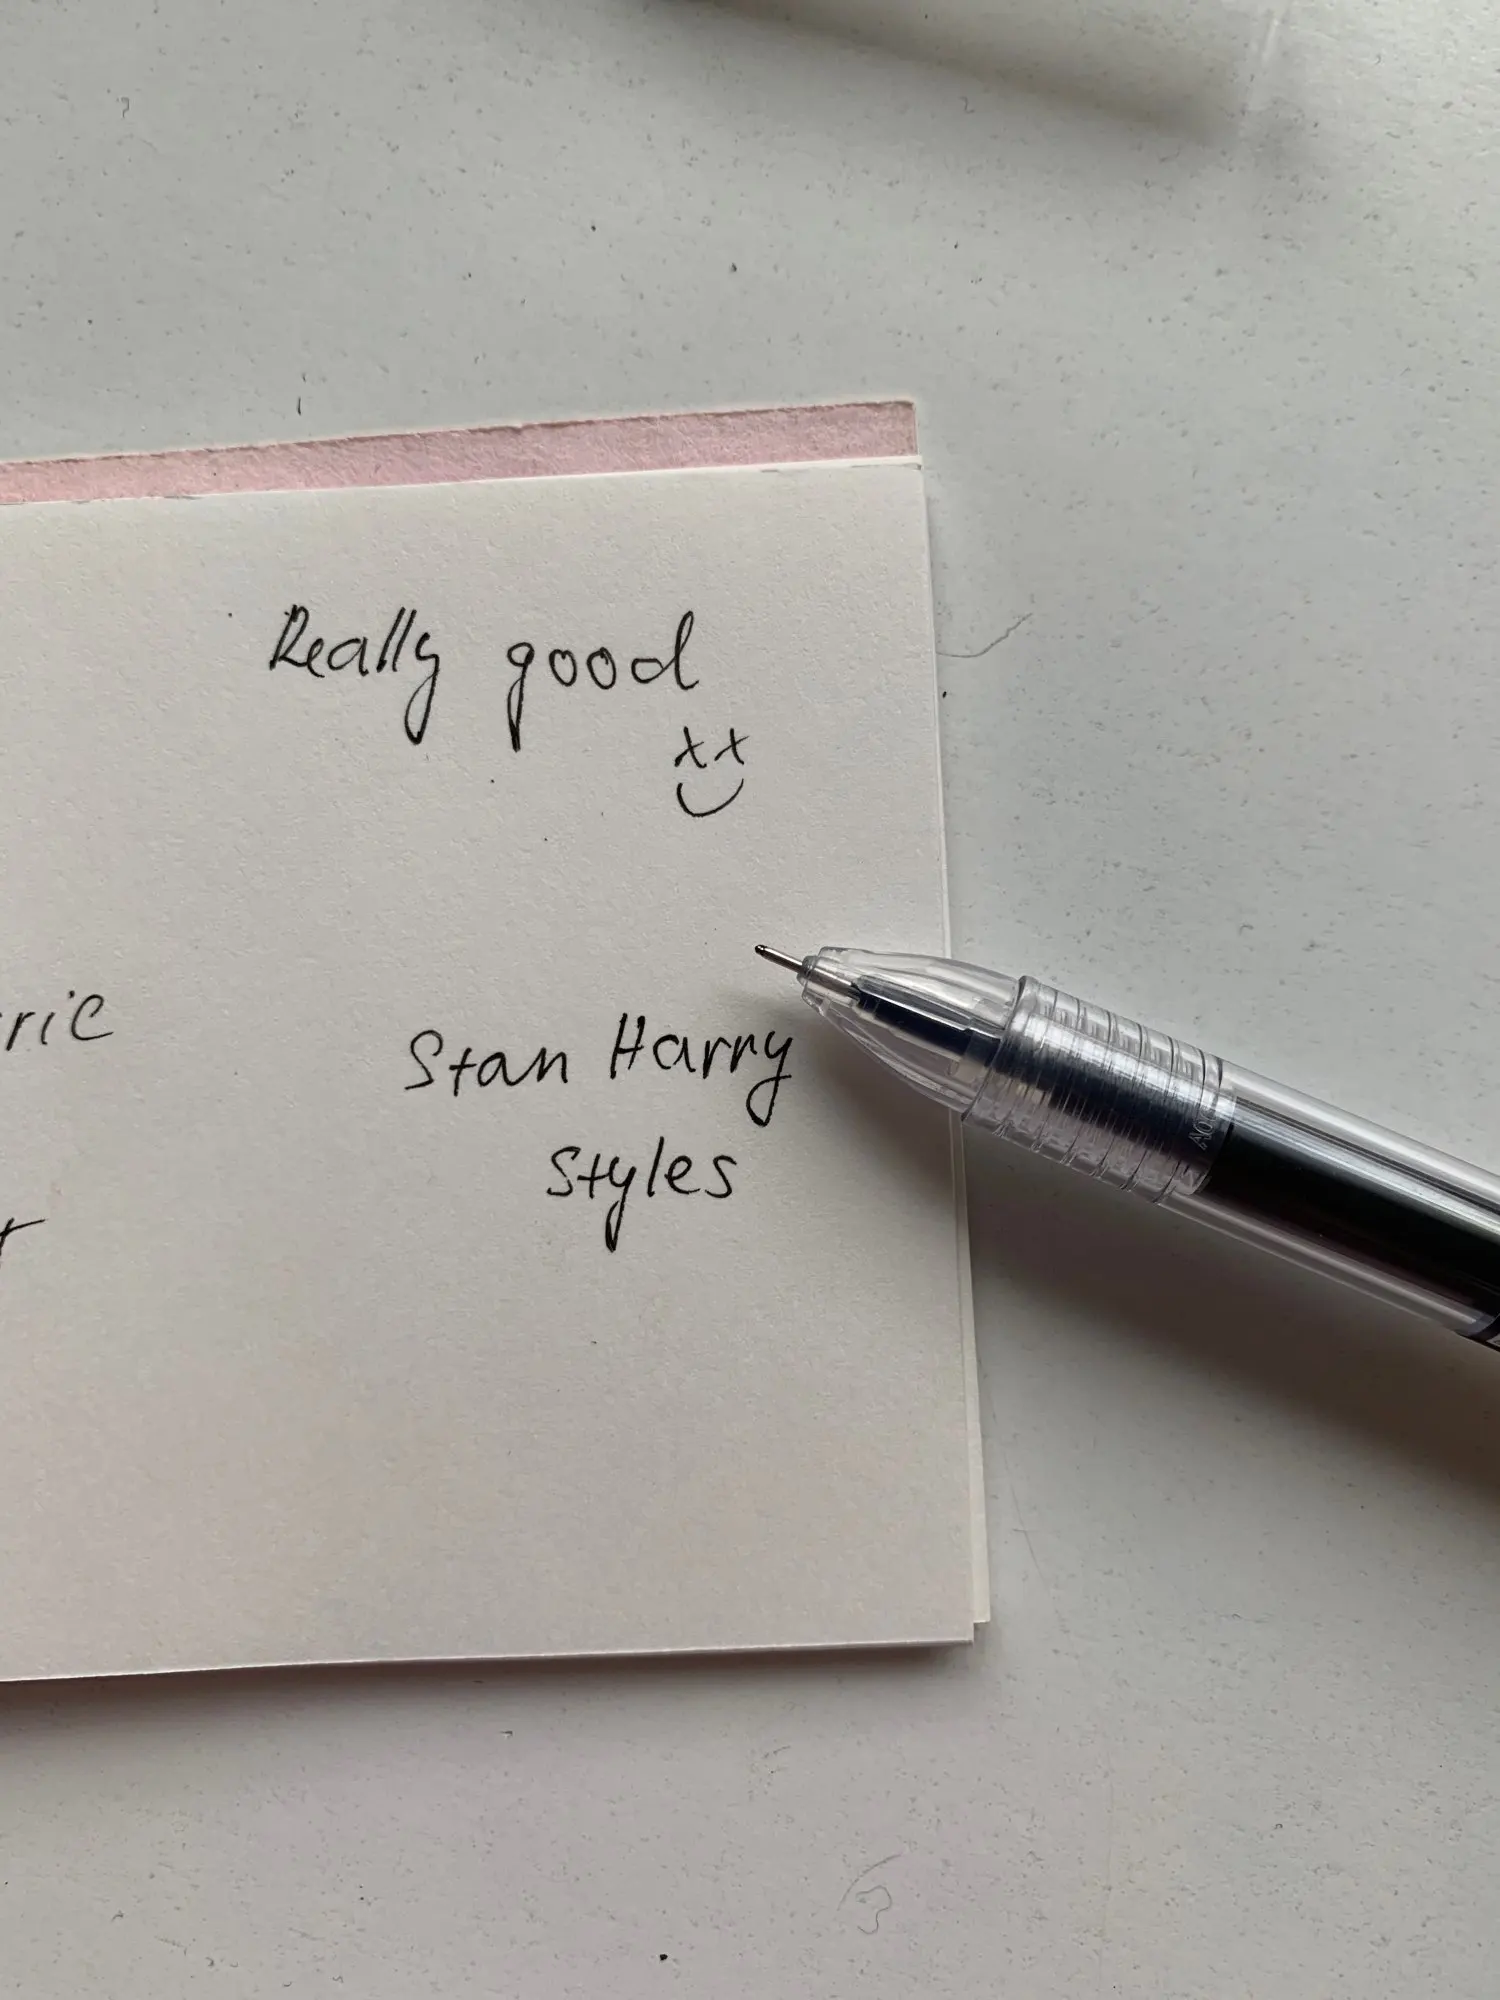 Really good
xx
Stan Harry
Styles